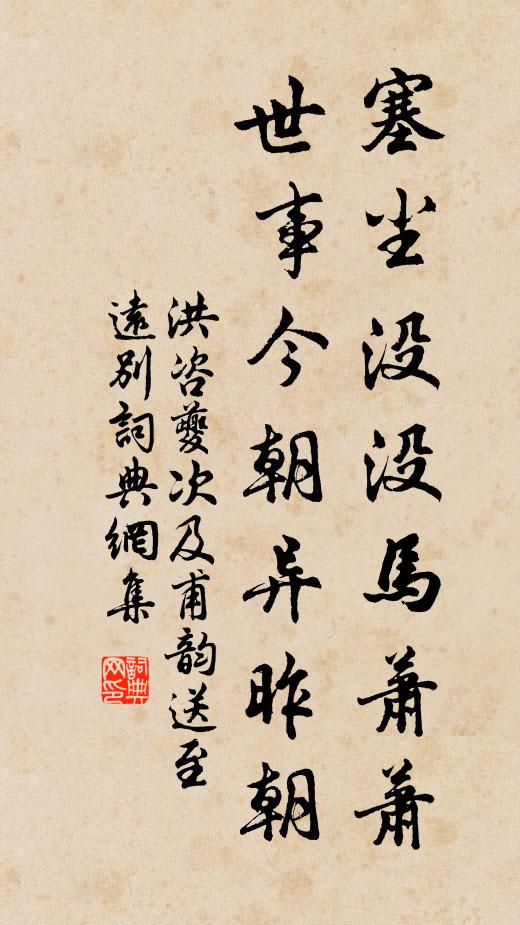 塞尘没没馬蕭蕭
世事今朝异昨朝
洪咨夔次及甫韵送至
遠别詞典網集
詞典网印